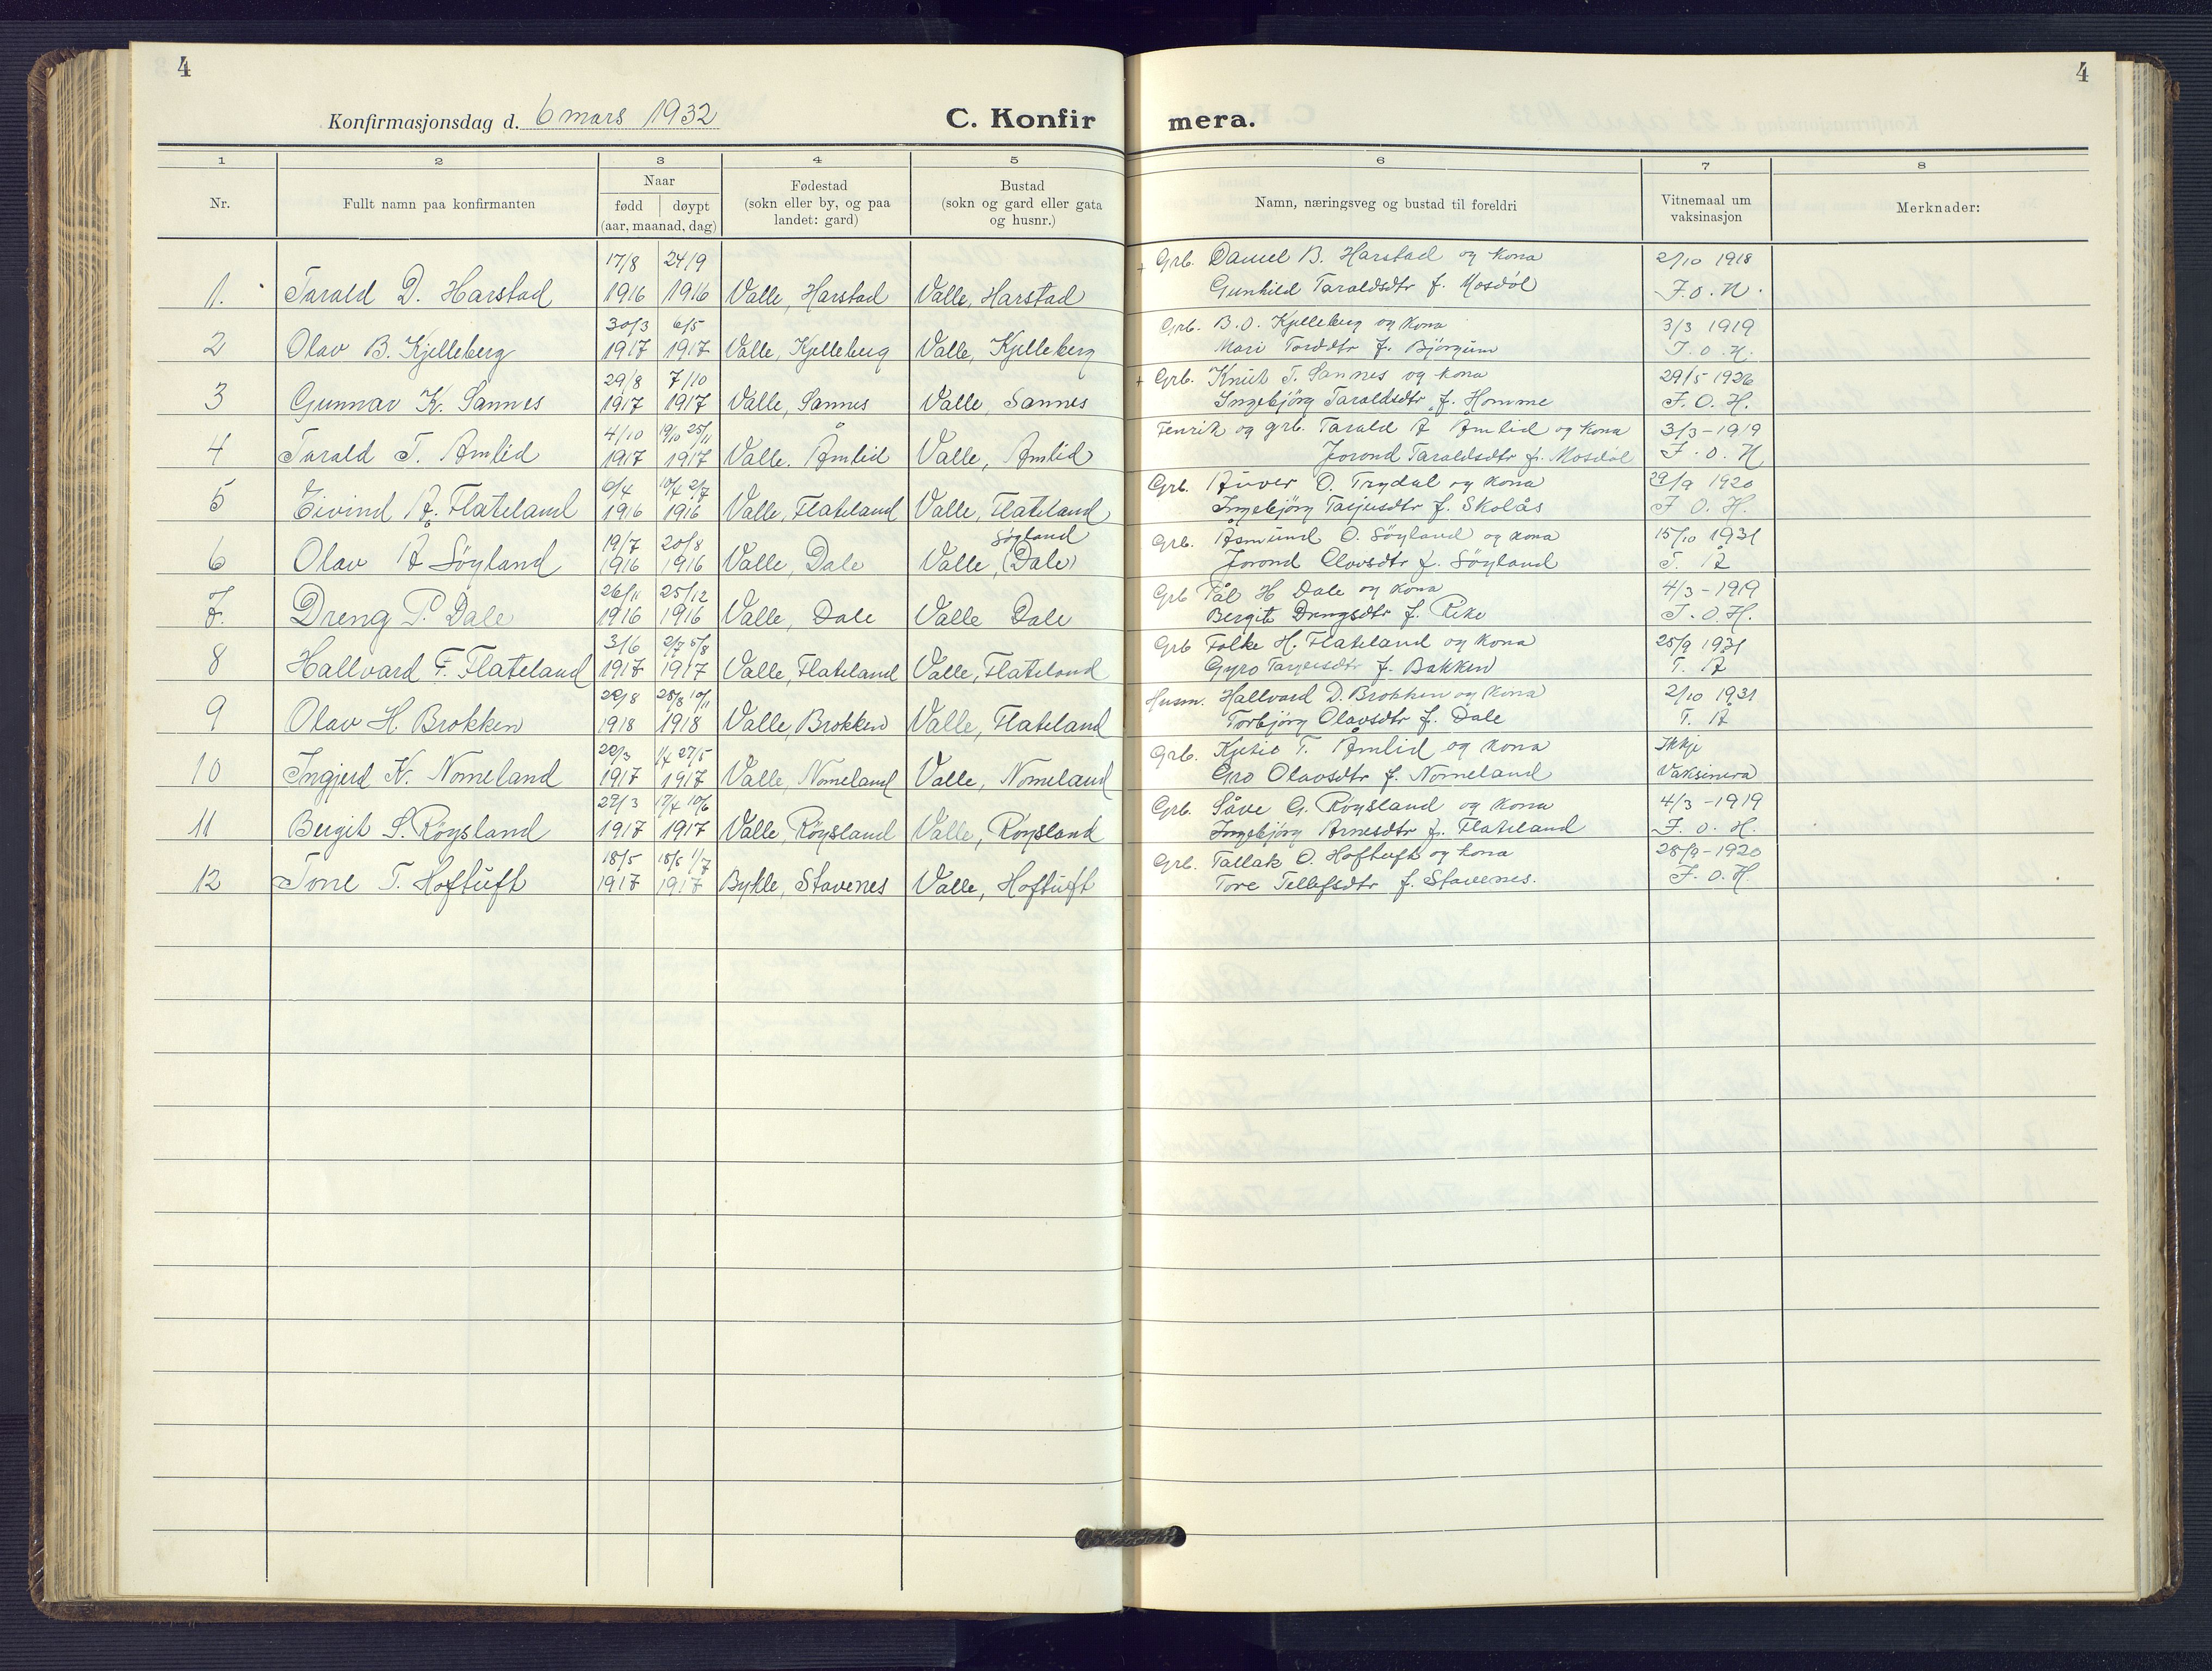 4
4
Konfirmasjonsdag d. 6 mars 1932
C. Konfir
mera.
1 2 3 4 5 6 7 8
Nr.
Fullt namn paa konfirmanten
Naar
fødd døypt
(aar, maanad, dag)
Fødestad
(sokn eller by, og paa
landet: gard)
Bustad
(sokn og gard eller gata
og husnr.)
Namn, næringsveg og bustad til foreldri
Vitnemaal um
vaksinasjon
Merknader:
17/8 24/9 + Grb. Daniel B. Harstad og kona 2/10 1918
1. Tarald D. Harstad 1916 1916 Valle, Harstad Valle, Harstad Gunhild Taraldsdtr f. Mosdöl J.O.H.
30/3 6/5 Grb. B.O. Kjelleberg og kona 3/3 1919
2 Olav B. Kjelleberg 1917 1917 Valle, Kjelleberg Valle, Kjelleberg Mari Torddtr f. Björgum J.O.H.
29/8 7/10 + Grb. Knut T. Sannes og kona 29/5 1926
3 Gunnar K. Sannes 1917 1917 Valle, Sannes Valle, Sannes Ingebjörg Taraldsdtr f. Homme J.O.H.
4/10 19/10 25/11 Fenrik og grb. Tarald A Åmlid og kona 3/3-1919
4 Tarald T. Åmlid 1917 1917 Valle. Åmlid Valle, Åmlid Jorond Taraldsdtr f. Mosdöl J.O.H
9/4 10/4 2/7 Grb. Åuver O. Trydal og kona 29/9 1920
5 Eivind Å. Flateland 1916 1916 Valle, Flateland Valle, Flateland Ingebjörg Tarjeisdtr f. Skolås J.O.H.
Söyland
19/7 20/8 Grb. Åsmund O. Söyland og kona 15/10 1931
6 Olav Å Söyland 1916 1916 Valle, Dale Valle, (Dale) Jorond Olavsdtr f. Söyland T. Å
26/11 25/12 Grb Pål H Dale og kona 4/3-1919
7. Dreng P. Dale 1916 1916 Valle, Dale Valle Dale Bergit Drengsdtr f. Rike J.O.H.
3/6 2/7 5/8 Grb Folke H. Flateland og kona 25/9 1931
8 Hallvard F. Flateland 1917 1917 Valle, Flateland Valle, Flateland Gyro Tarjeisdtr f. Bakken T. Å
28/8 10/11 Husm. Hallvard D. Brokken og kona 2/10 1931
9 Olav H. Brokken 1918 1918 Valle, Brokken Valle, Flateland Torbjörg Olavsdtr f. Dale T. Å
1/4 27/5 Grb. Kjetil T. Åmlid og kona Ikkje
10 Ingjerd K. Nomeland 1917 1917 Valle, Nomeland Valle, Nomeland Gro Olavsdtr f. Nomeland Vaksinera
27/3 17/4 10/6 Grb. Såve G. Röysland og kona 4/3-1919
11 Bergit S. Röysland 1917 1917 Valle, Röysland Valle, Röysland Ingebjörg Arnesdtr f. Flateland J.O.H.
18/5 18/5 1/7 Grb. Tallak O. Hoftuft og kona 28/9-1920
12 Tone T. Hoftuft 1917 1917 Bykle, Stavenes Valle, Hoftuft Tore Tellefsdtr f. Stavenes. J.O.H.